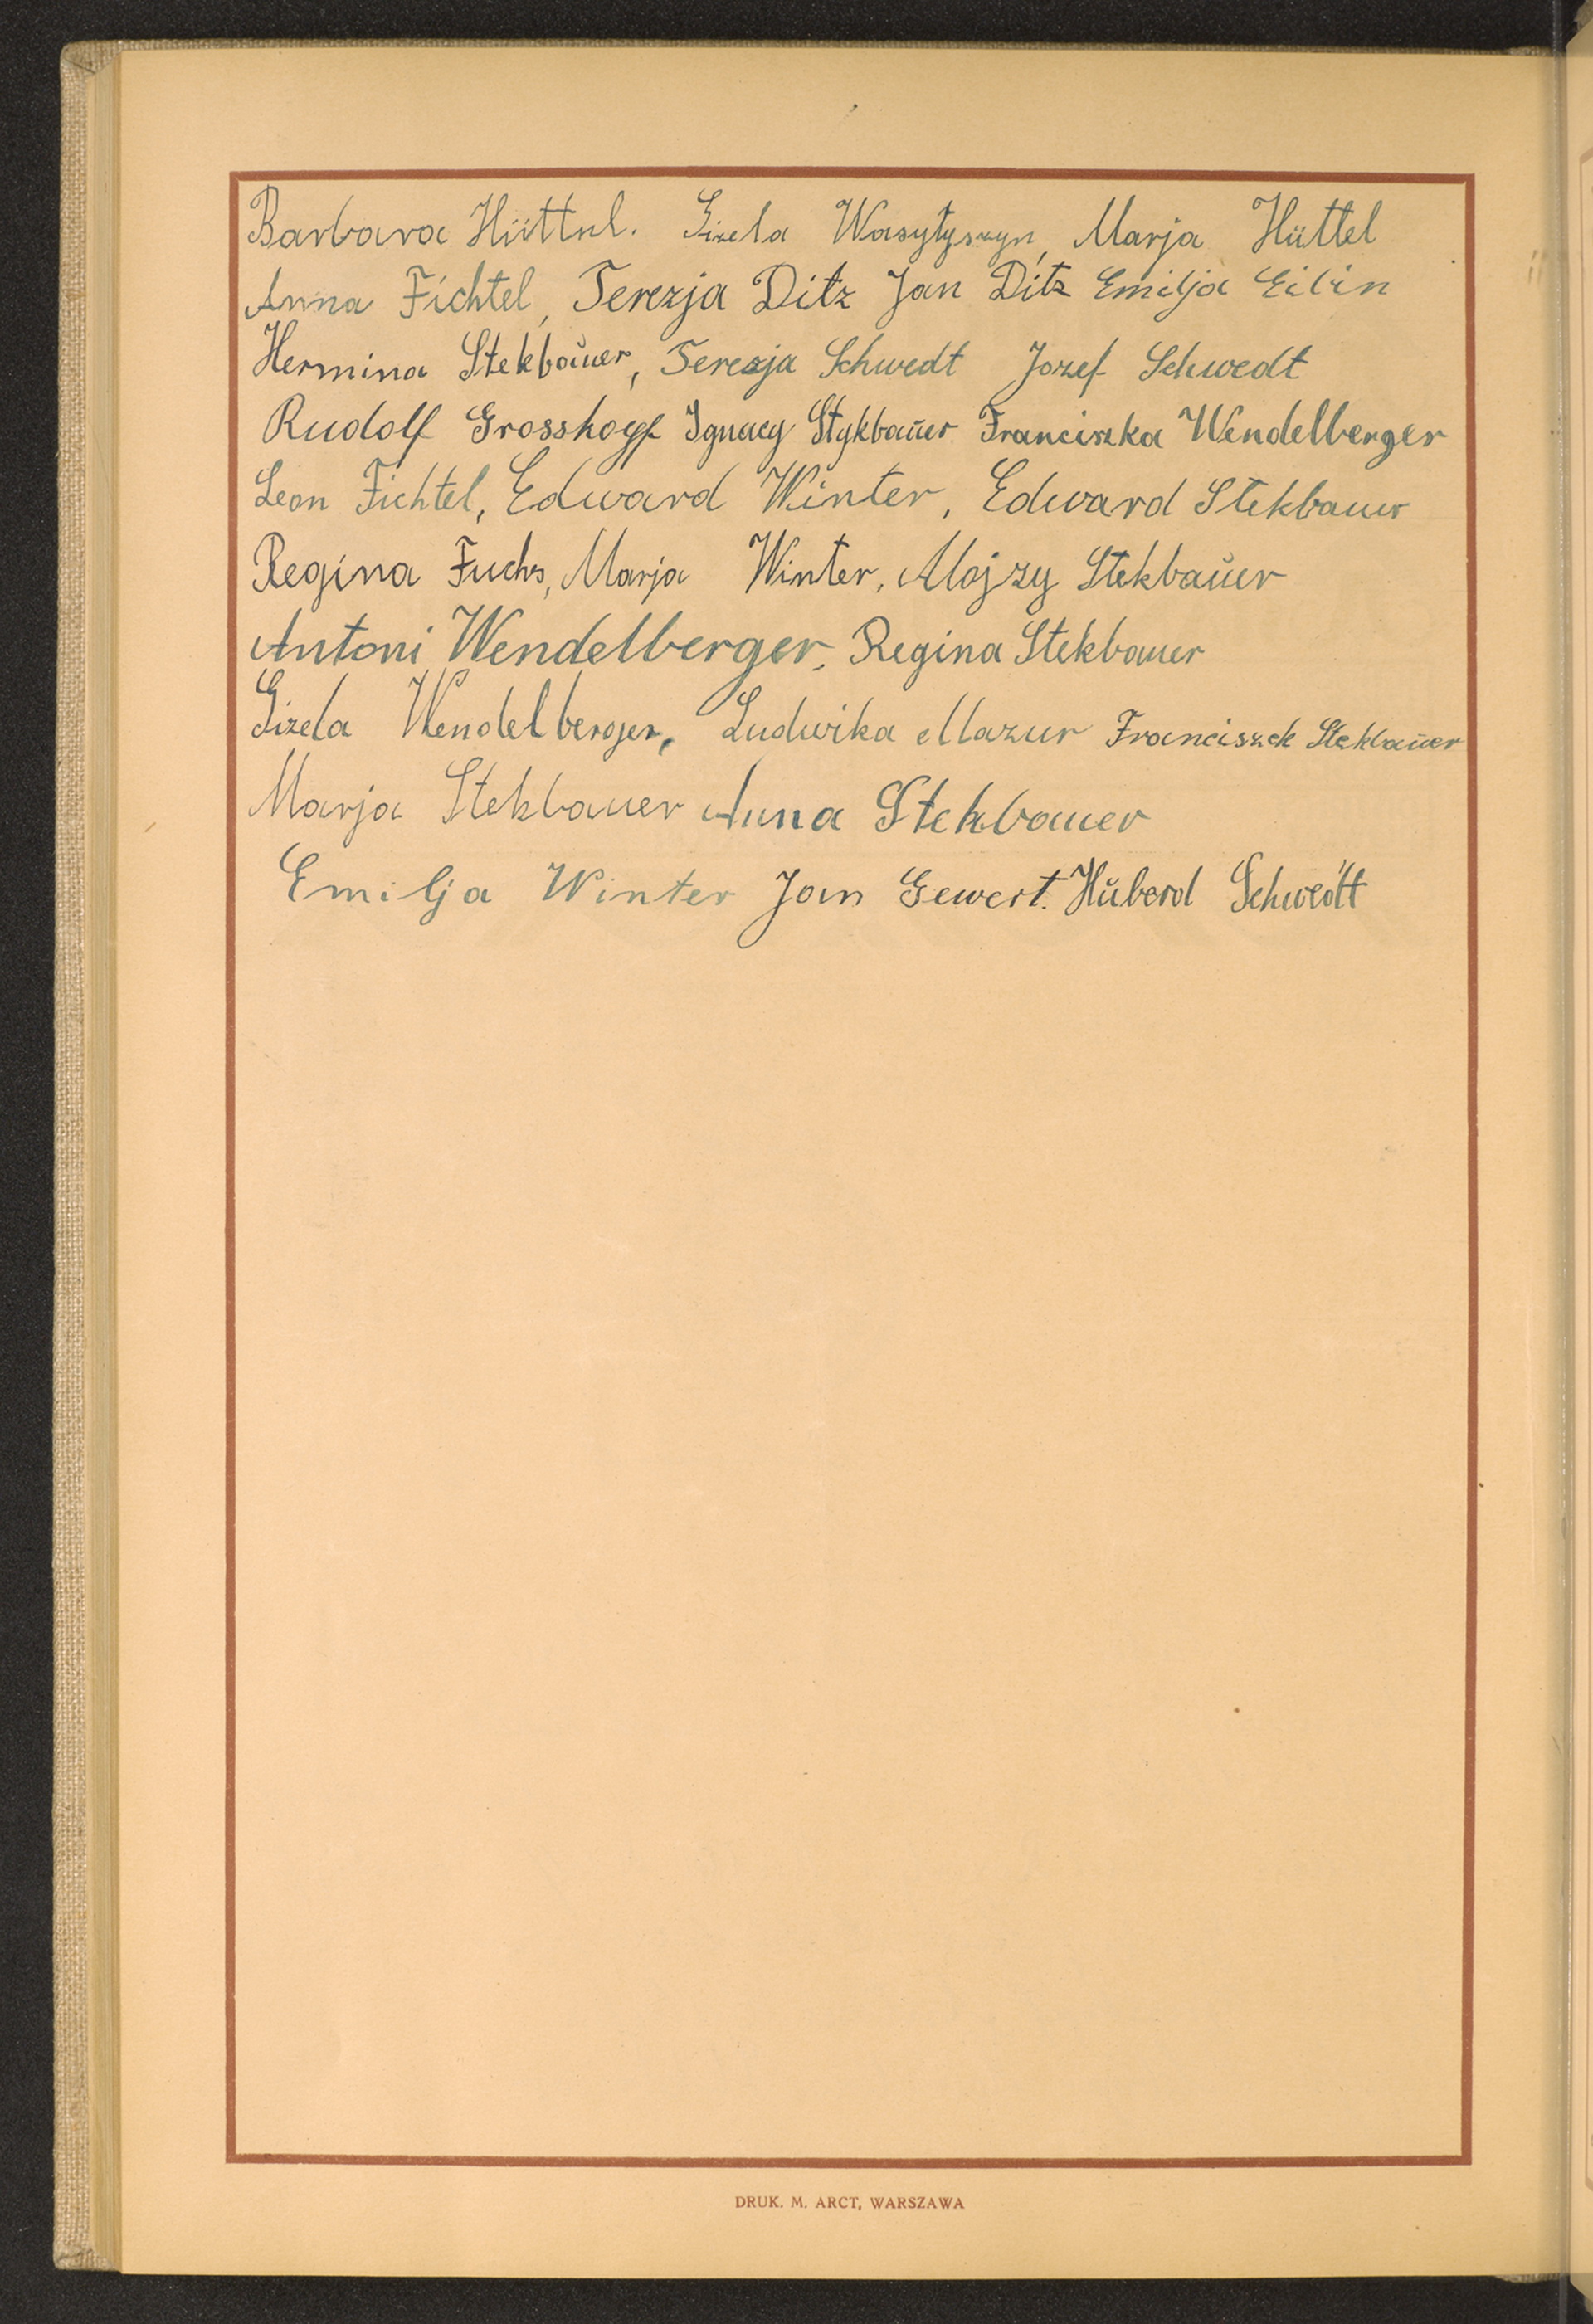 Barbara Hüttnl. Gizela Wasyłyszyn, Marja Hüttel
Anna Fichtel, Terezja Ditz Jan Ditz Emilja Eibin
Hermina Stekbaŭer, Terezja Schwedt Jozef Schwedt
Rudolf Grosskopf Ignacy Stykbaŭer Franciszka Wendelberger
Leon Fichtel, Edward Winter, Edward Stekbauer
Regina Fuchs, Marja Winter, Alojzy Stekbaŭer
Antoni Wendelberger, Regina Stekbauer
Gizela Wendelberger, Ludwika Mazur Franciszek Stekbaŭer
Marja Stekbauer Anna Stekbauer
Emilja Winter Jan Gewert. Hŭberd Schwedtt
DRUK. M. ARCT, WARSZAWA